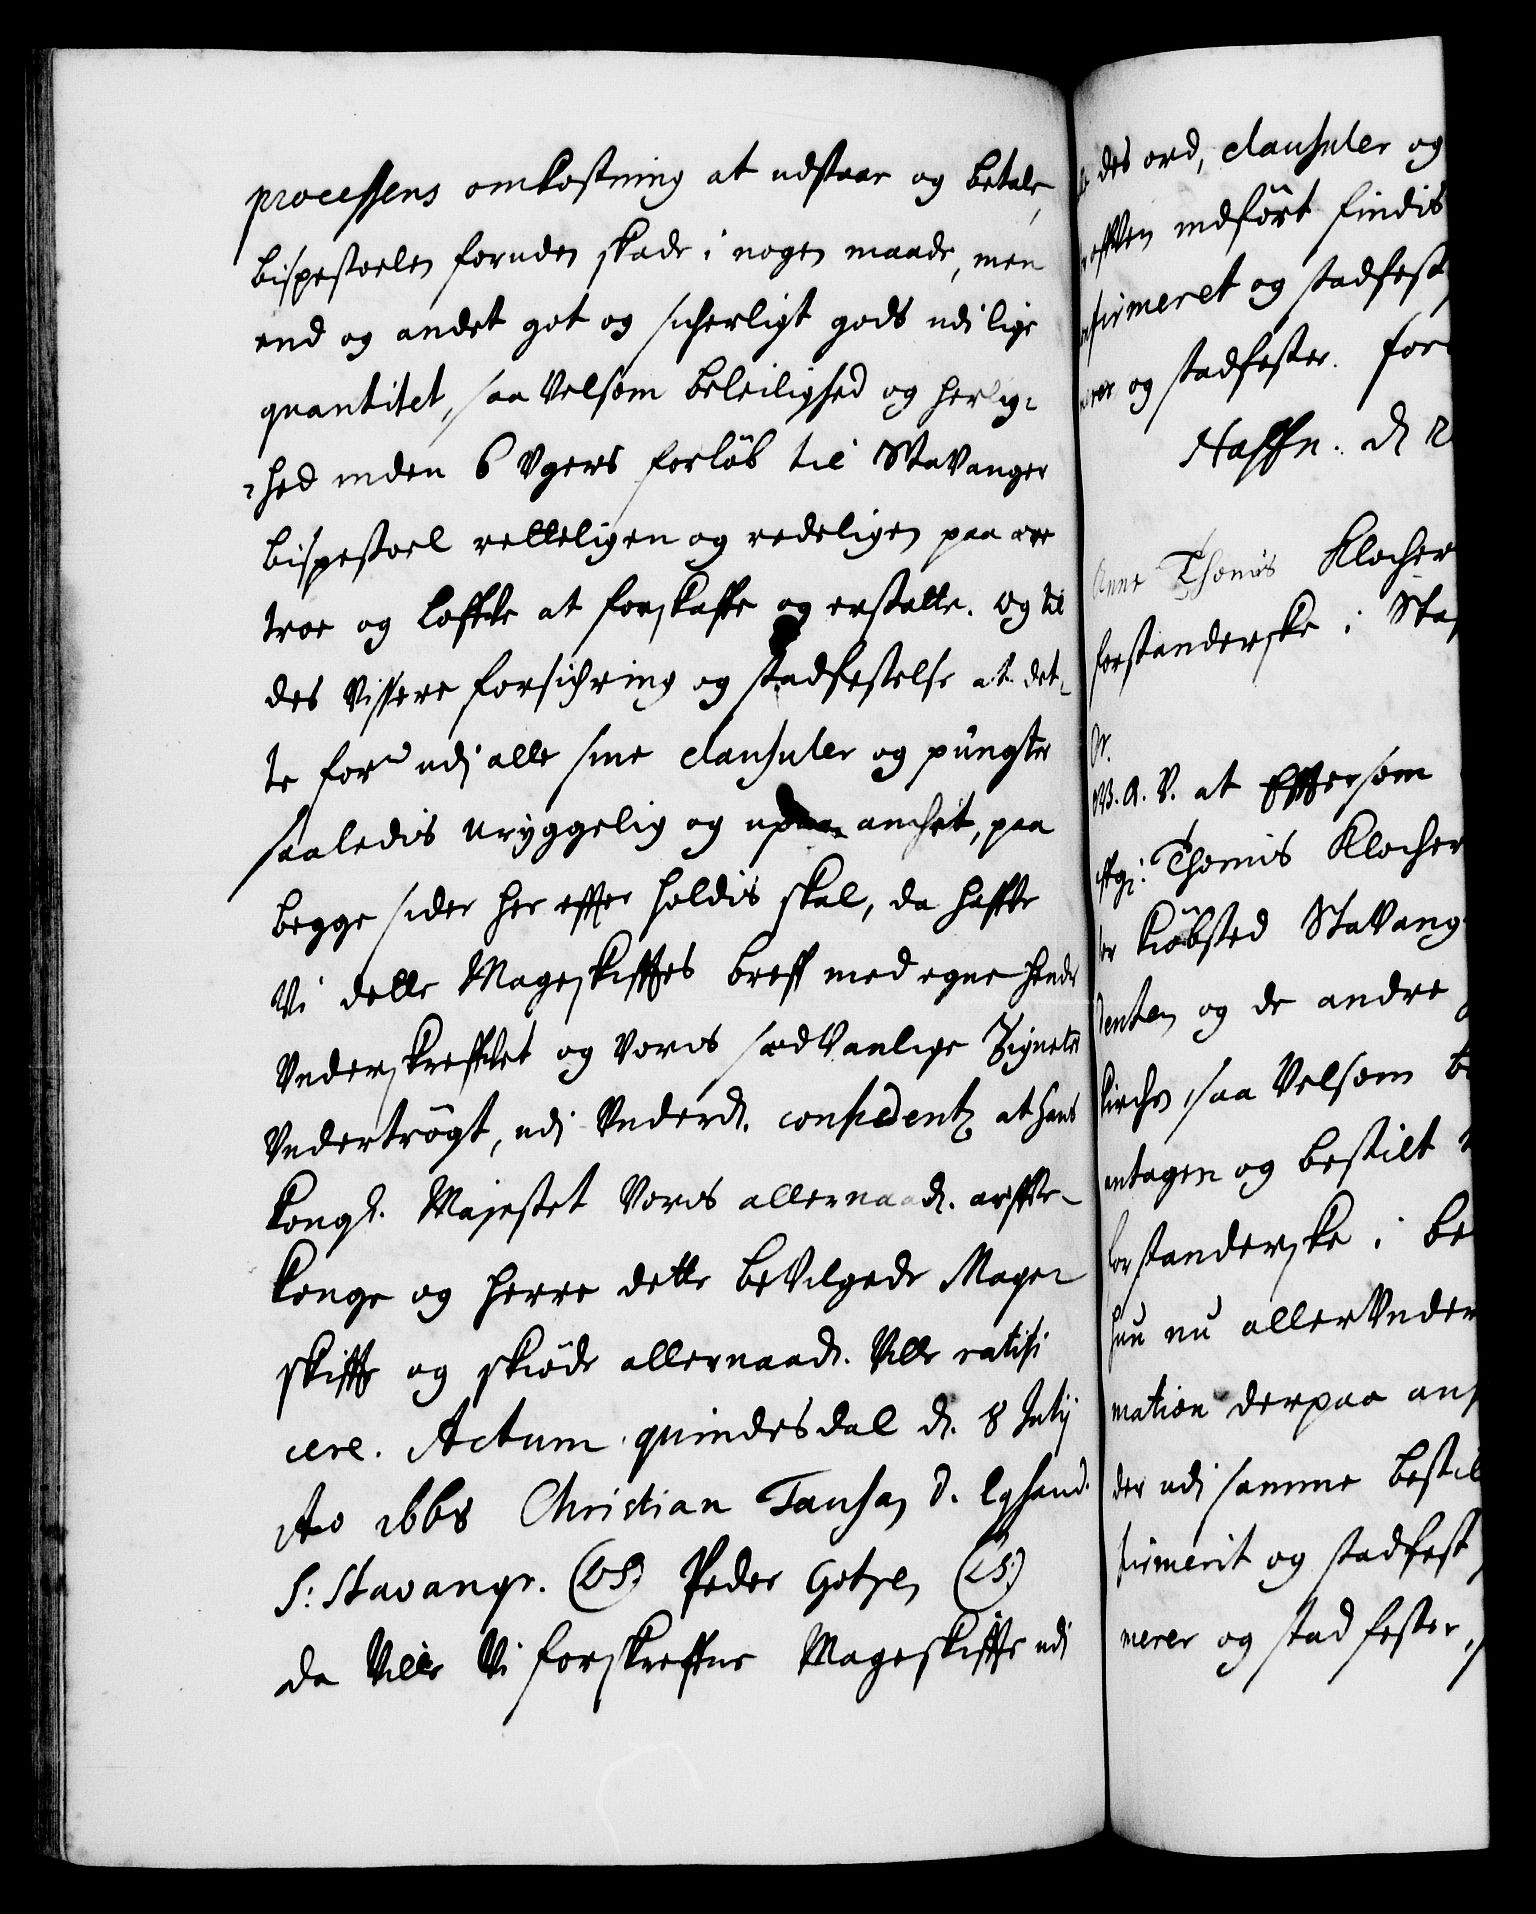 processens omkostning at udstaar og betale,
bispestoelen foruden skade i nogen maade, men
end og andet got og sicherligt gods udi lige
quantitet, saa Velsom beleilighed og herlig-
-hed inden 6 Vgers forlöb til StaVanger
bispestoel retteligen og redeligen paa ære
troe og Loffve at forskaffe og erstatte. og til
des Vissere forsichring og stadfestelse at det-
te for.ne udj alle sine clausuler og püngter
saaledis Uryggelig og anchet, paa
begge sider her effter holdis skal, da haffve
Vi dette Mageskifftes breff med egne hende
Underskreffvet og Voris sædVanlige Zigneter
Vndertrögt, udi Underd. confidentz at hans
Kongl. Majestet Voris allernaad. arffve-
Konge og herre dette beVilgede Mage-
skiffte og skiöde allernaad. Ville ratifi
cere. Actum quindesdal d. 8 Julij
Ao 1668 Christian Tausan D. Eghand.
S: Stavangr. (LS.) Peder Gotzen (LS.)
da Ville Vi forskreffne Mageskiffte udi
des ord, clausuler og
indfört findis
firmeret og stadfest
og stadfester. For
Haffn. d. 2
Anne Thomis Klocher
forstanderske i Sta
Gr.
W. A. V. at Efftersom
Thomis Klocher
Kiöbsted StaVang
og de andre
Kirche, saa Velsom b
antagen og bestilt
forstanderske i be
hun nu allerVnder
mation derpaa an
der udi samme bestil
firmerit og stadfest
merer og stadfester,